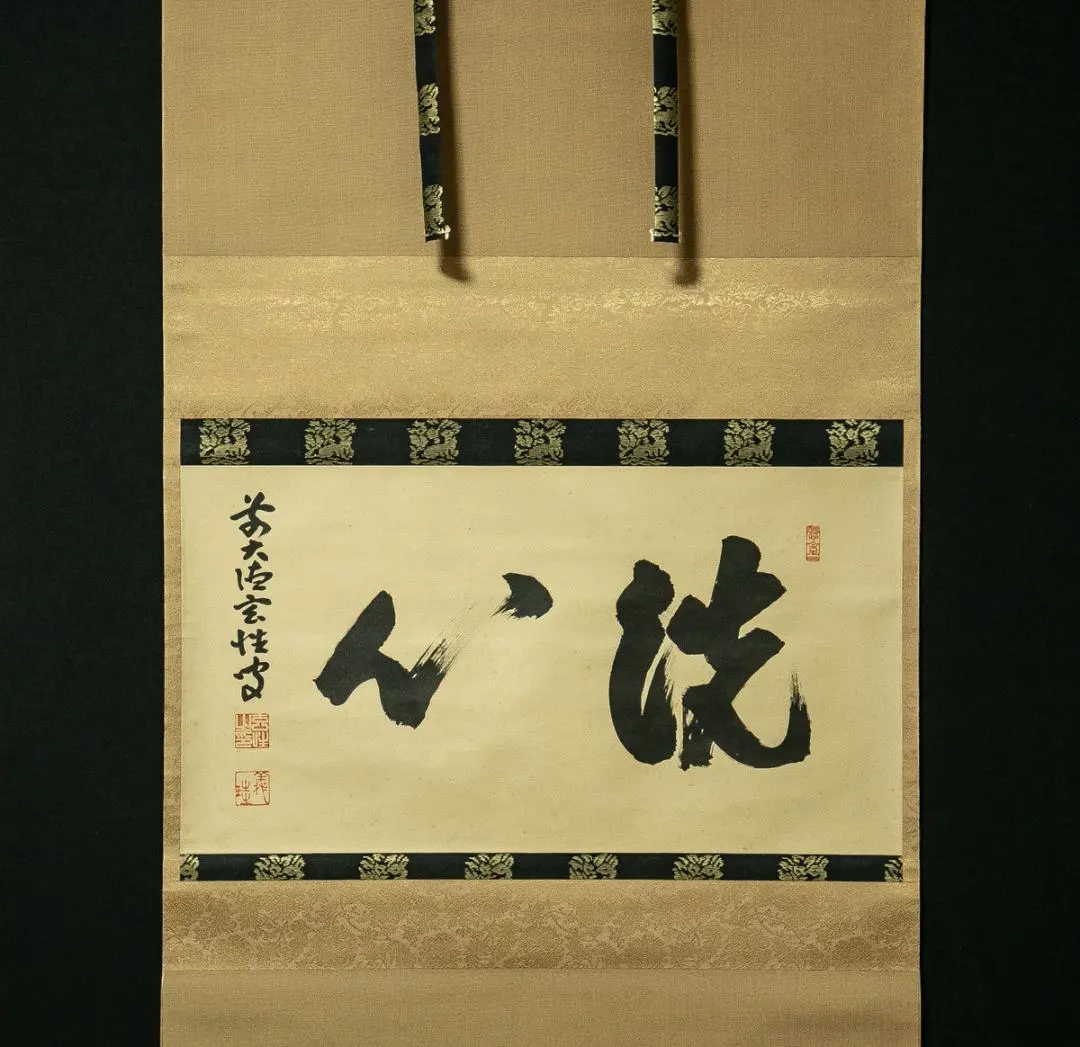 洗心
前大徳玄性書